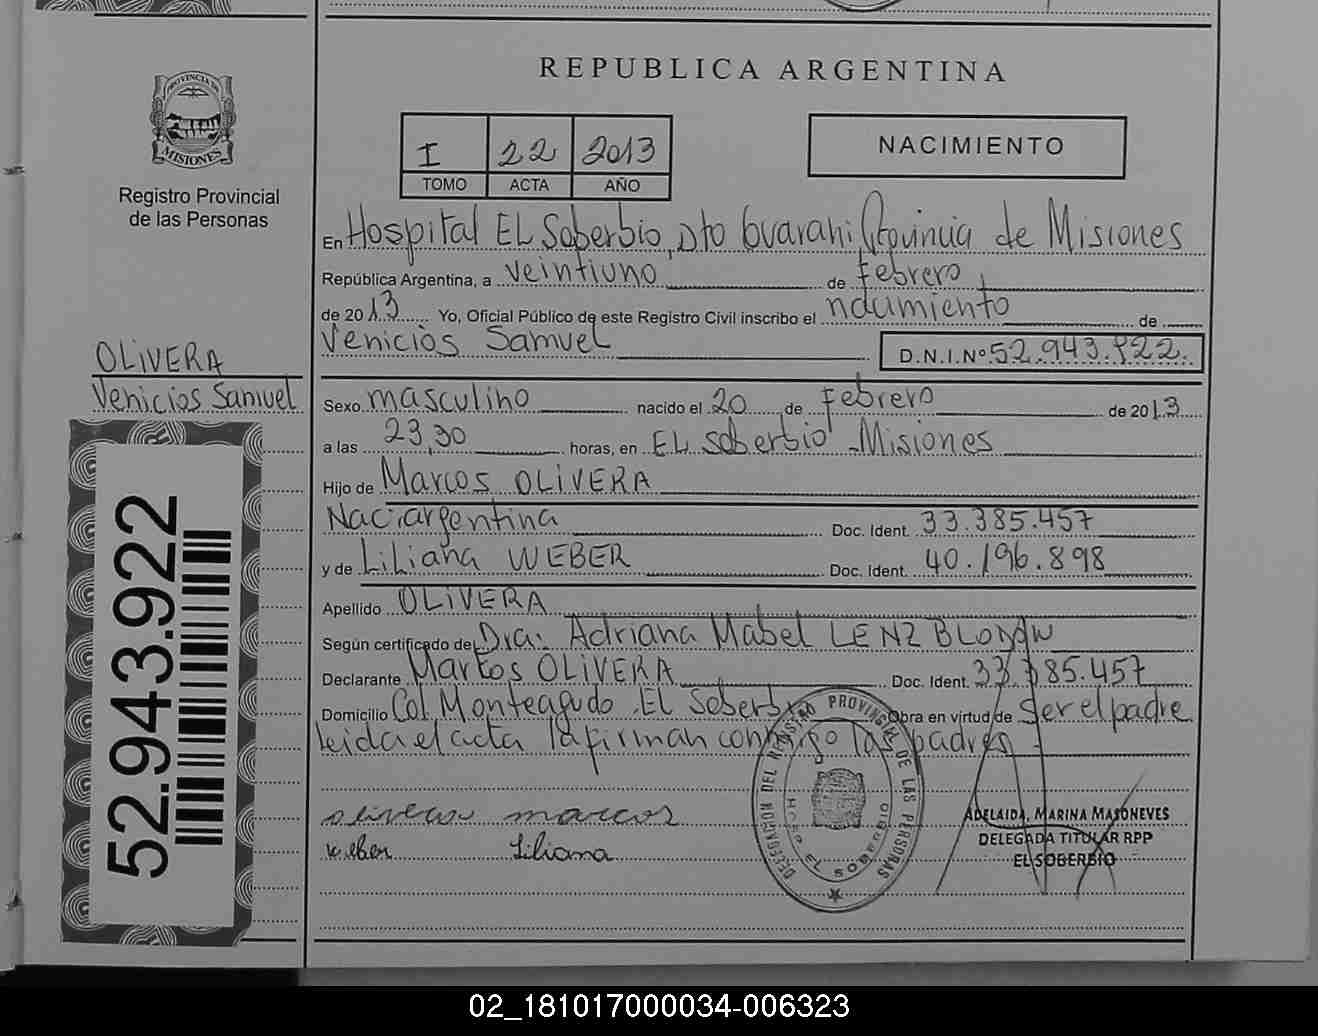 REPUBLICA ARGENTINA
PROVINCIA DE
MISIONES
Registro Provincial
de las Personas
I 22 2013
TOMO ACTA AÑO
NACIMIENTO
En Hospital EL Soberbio, Dto Guarani, Provincia de Misiones
República Argentina, a veintiuno de Febrero
de 2013 Yo, Oficial Público de este Registro Civil inscribo el nacimiento de
Venicios Samuel D.N.I.Nº 52.943.922.
OLIVERA
Venicios Samuel
Sexo masculino nacido el 20 de Febrero de 2013
a las 23,30 horas, en EL Soberbio - Misiones
Hijo de Marcos OLIVERA
Nac. argentina Doc. Ident. 33.385.457
y de Liliana WEBER Doc. Ident. 40.196.898
Apellido OLIVERA
Según certificado de Dra: Adriana Mabel LENZ
Declarante Marcos OLIVERA Doc. Ident. 33.385.457
Domicilio Col Monteagudo. EL Soberbio Obra en virtud de ser el padre
leida el acta la firman conmigo los padres
olivera marcos
weber Liliana
52.943.922
DELEGACION DEL REGISTRO PROVINCIAL DE LAS PERSONAS
HOSP EL SOBERBIO
ADELAIDA MARINA MASONEVES
DELEGADA TITULAR RPP
EL SOBERBIO
02_181017000034-006323